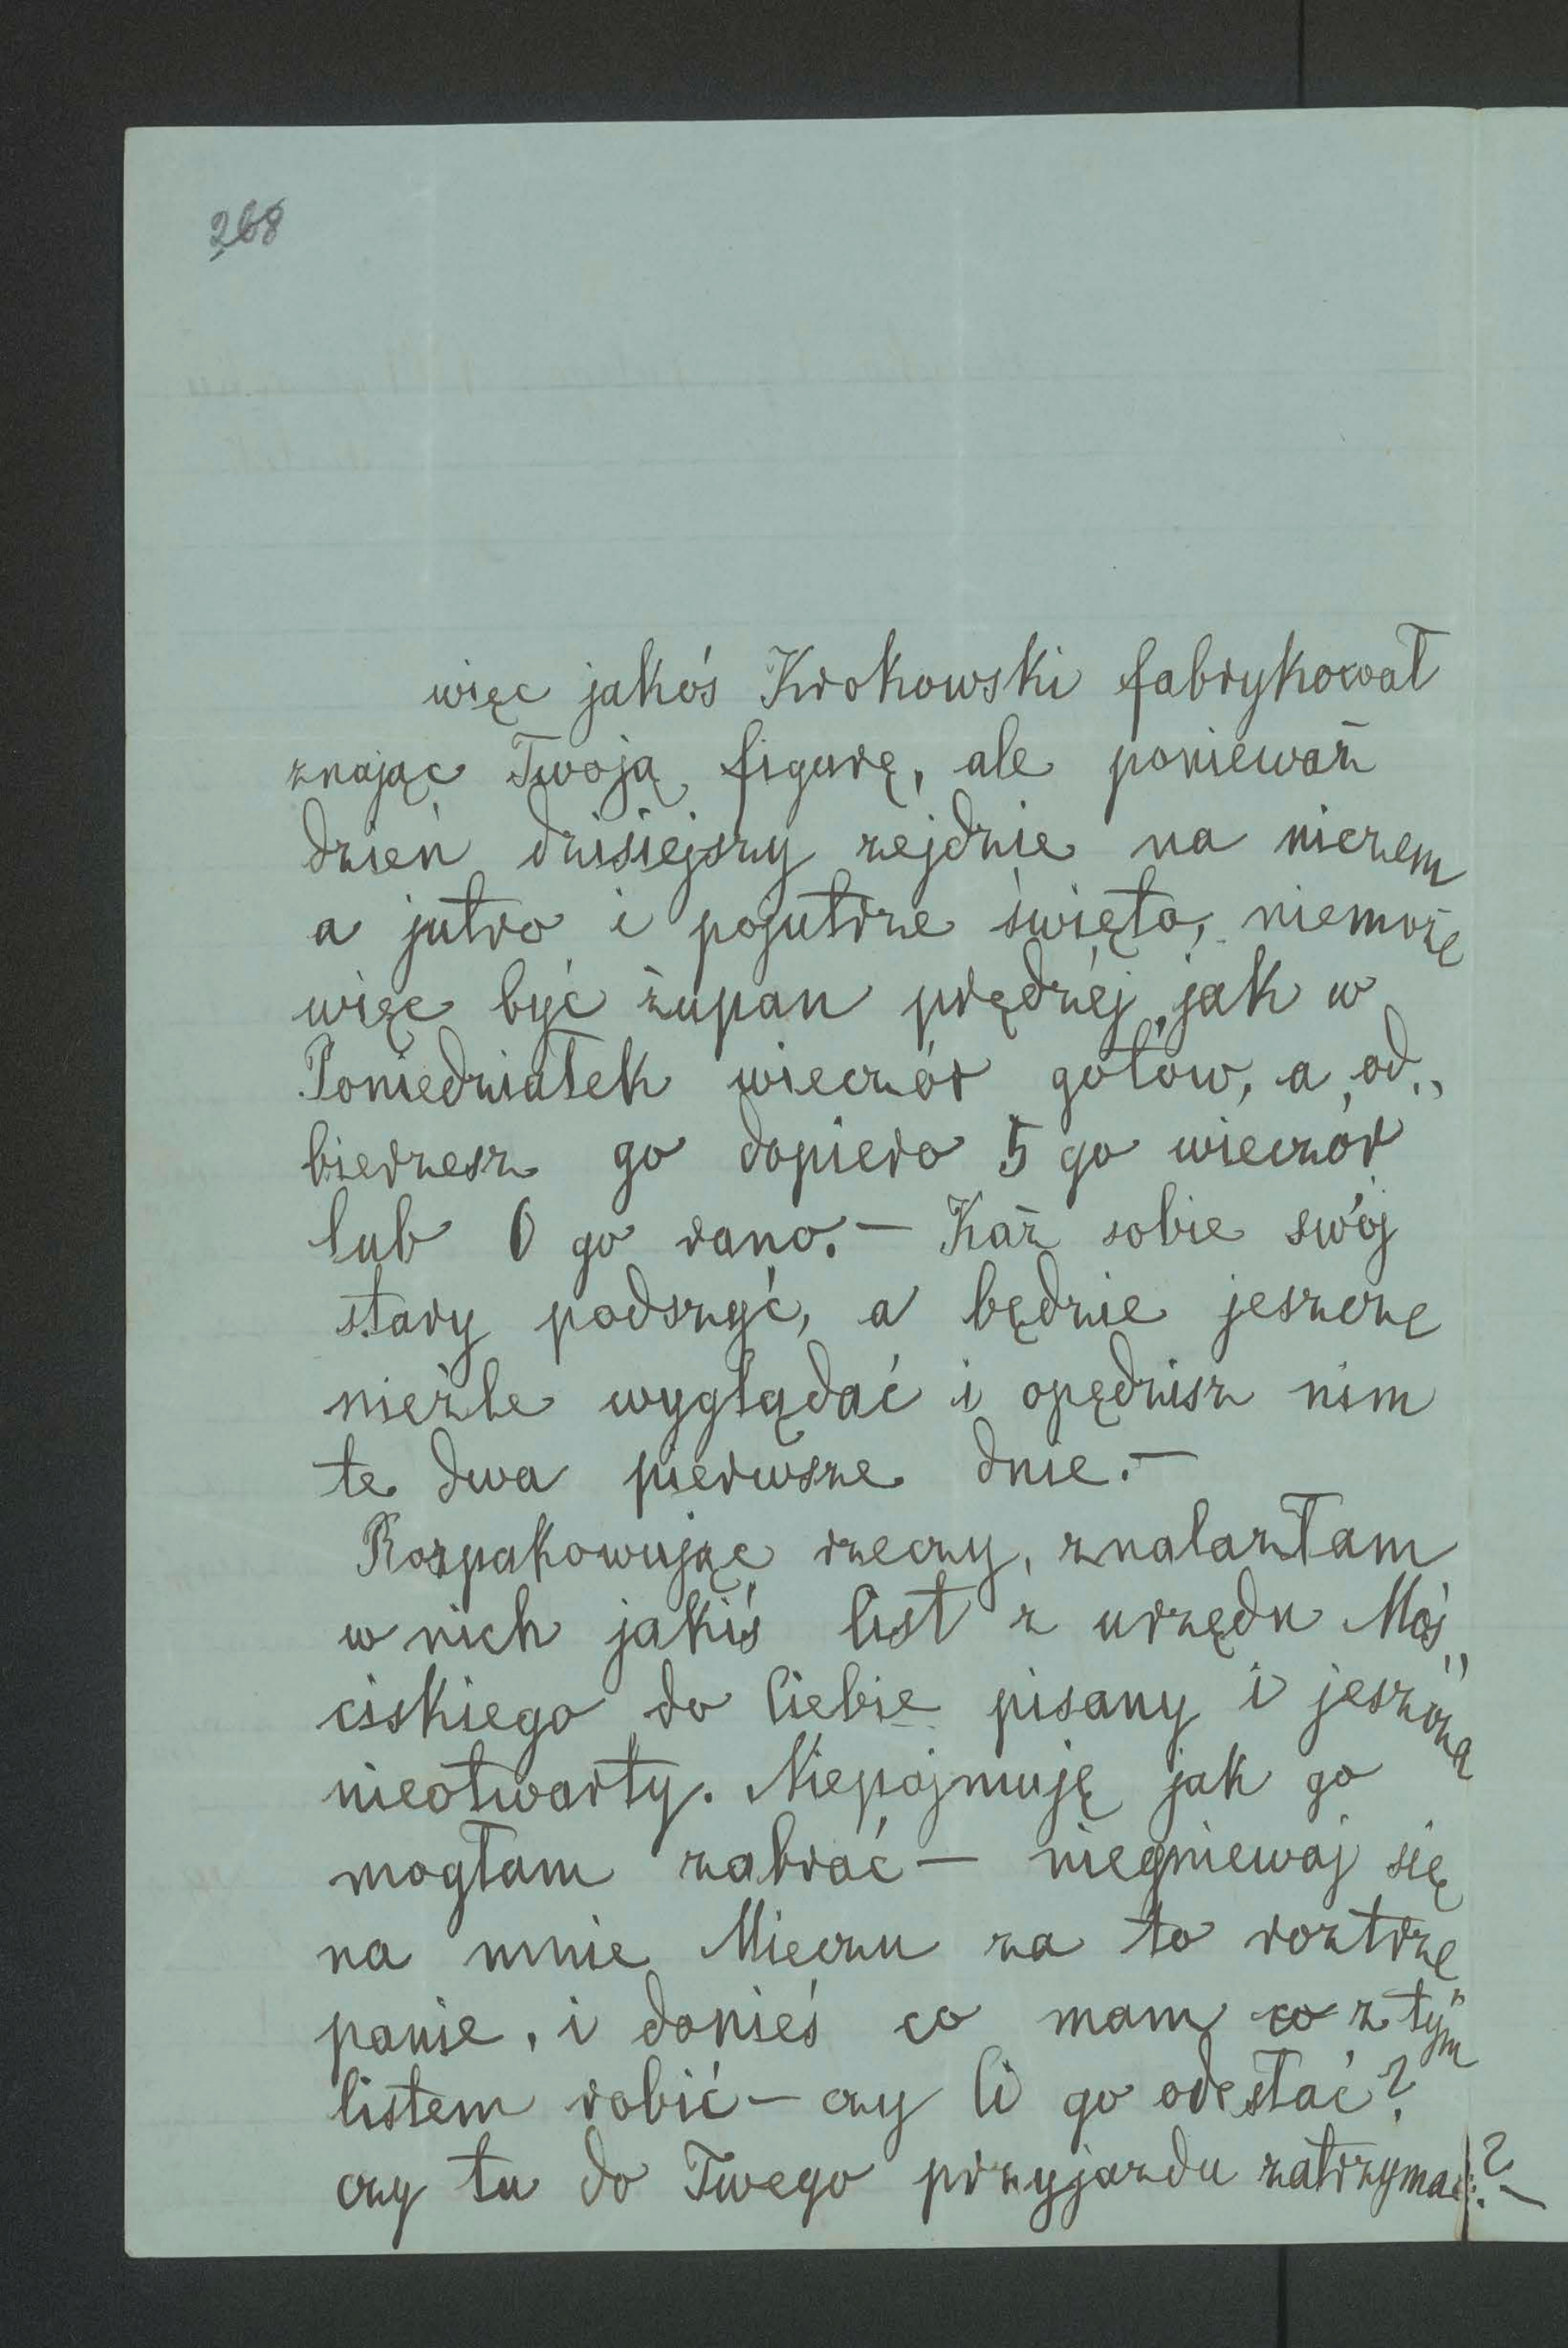 268
więc jakoś Krokowski fabrykował
znając Twoją figurę, ale ponieważ
dzień dzisiejszy zejdzie na niczem
a jutro i pojutrze święto, niemoże
więc być żupan prędzéj jak w
Poniedziałek wieczór gotów, a od„
bierzesz go dopiero 5 go wieczór
lub 6 go rano.— Każ sobie swój
stary podszyć, a będzie jeszcze
nieźle wyglądać i opędzisz nim
te dwa pierwsze dnie.—
Rozpakowując rzeczy, znalazłam
w nich jakiś list z urzędu Moś„
ciskiego do Ciebie pisany i jeszcze
nieotwarty. Niepojmuję jak go
mogłam zabrać — niegniewaj się
na mnie Mieczu za to roztrze„
panie, i donieś co mam co z tym
listem robić — czy Ci go odesłać?
czy tu do Twego przyjazdu zatrzymać?—